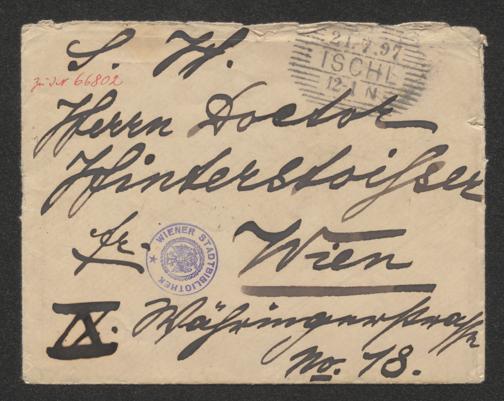 S. W.
21.7.97
ISCHL
12-1 N
zu I.N 66802
Herrn Doctor
Hinterstoisser
fr. Wien
WIENER STADTBIBLIOTHEK
IX. Währingerstrasse
No. 18.